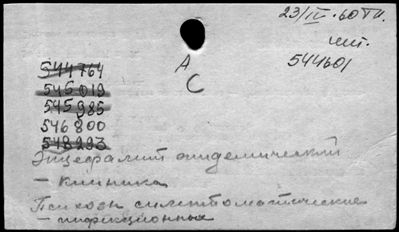 23/IV-60 г.
чит.
544601
А
С
544764
545019
545985
546800
548293
Энцефалит эпидемический
— клиника
Психозы симптоматические
— инфекционные